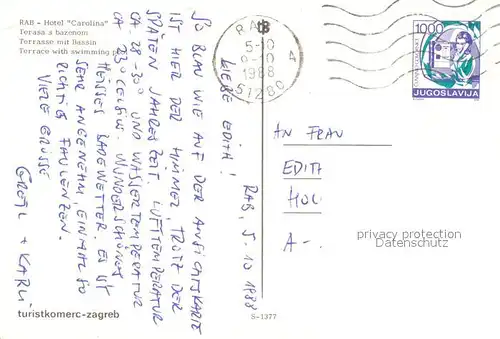 RAB - Hotel "Carolina"
Terasa s bazenom
Terrasse mit Bassin
Terrace with swimming
RAB, 5. 10 1988
LIEBE EDITH!
SO BLAU WIE AUF DER ANSICHTSKARTE
IST HIER DER HIMMEL, TROTZ DER
SPÄTEN JAHRESZEIT. LUFTTEMPERATUR
CA. 28-30° UND WASSERTEMPERATUR
CA. 23° CELSIUS. WUNDERSCHÖNES
HEISSES BADEWETTER. ES IST
SEHR ANGENEHM, EINMAL SO
RICHTIG FAULENZEN.
VIELE GRÜSSE
GRETL + KARLI
turistkomerc-zagreb
S-1377
RAB
5-10
1988
51280
1000
JUGOSLAVIJA
AN FRAU
EDITH
A-.
privacy protection
Datenschutz